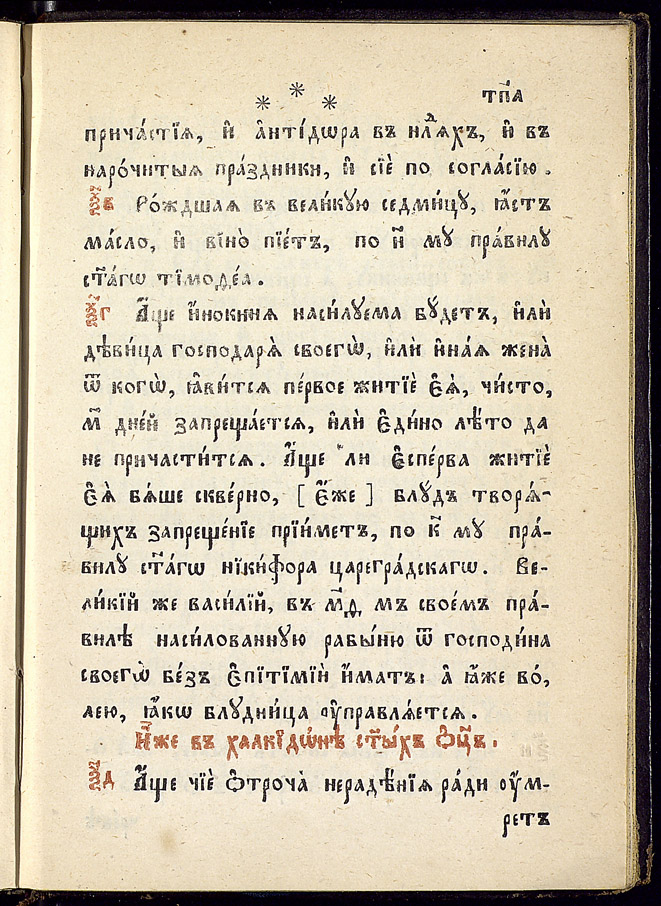 * * * тп҃а
прича́стїѧ, и҆ а҆нті́дѡра въ нл҃ѧхъ, и҆ въ
наро́читыѧ пра́здники, и҆ сїѐ по согла́сїю.
в Ро́ждшаѧ въ вели́кую седми́цу, ꙗ҆стъ
ма́сло, и҆ вїно̀ пїе́тъ, по и҃ му пра́вилу
ст҃а́гѡ тїмоѳе́а.
г А҆́ще и҆́нокинѧ наси́луема бу́детъ, и҆лѝ
дѣви́ца господарѧ̀ своегѡ̀, и҆лѝ и҆на́ѧ жена̀
ѿ когѡ̀, ꙗ҆ви́тсѧ пе́рвое житїѐ є҆ѧ̀, чи́сто,
м҃ дне́й запреща́етсѧ, и҆лѝ є҆ди́но лѣ́то да
не причасти́тсѧ. А҆́ще ли є҆спе́рва житїѐ
є҆ѧ̀ бѧ́ше скве́рно, [ є҆́же ] блу́дъ творѧ́-
щихъ запреще́нїе прїи́метъ, по к҃ му пра́-
вилу ст҃а́гѡ ники́фора цареградскагѡ. Ве-
ли́кїй же васи́лїй, въ м҃д мъ свое́мъ пра́-
вилѣ наси́лованную рабы́ню ѿ господи́на
своегѡ̀ бе́зъ є҆пїтїмїѝ и҆́матъ: а҆ ꙗ҆́же во́,
лею, ꙗ҆́кѡ блудни́ца ᲂу҆правлѧ́етсѧ.
И҆̀же въ халкїдѡ́нѣ ст҃ы́хъ ѻ҆ц҃ъ.
д А҆́ще чїѐ ѻ҆троча̀ нерадѣ́нїѧ ра́ди ᲂу҆́м-
ретъ